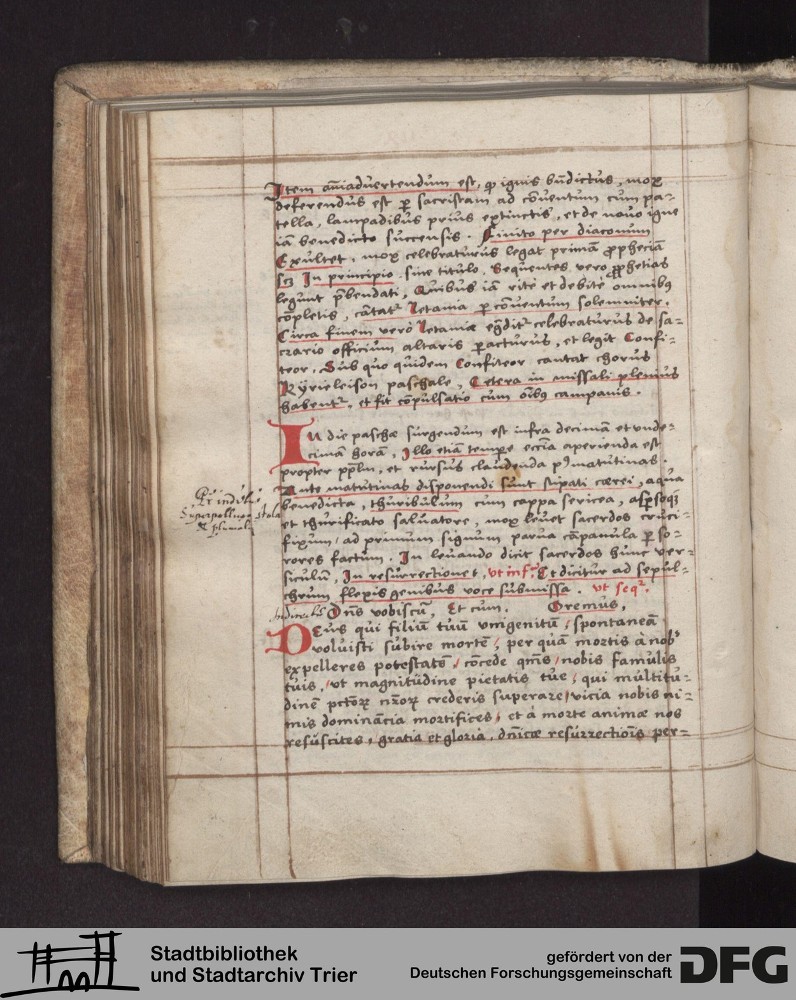 Item aĩaduertendum est, ꝙ ignis bñdictus, mox
deferendus est ꝑ sacristam ad cõuentum cum pa-
tella, lampadibus prius extinctis, et de nouo igne
iã benedicto succensis. Finito per diaconum
Exultet, mox celebraturus legat primã ꝓphecia
scꝫ In principio sine titulo. Sequentes vero ꝓphetias
legunt p̃bendati, Quibus iã rite et debite omnibꝯ
cõpletis, cantatr Letania ꝑ cõuentum solemniter.
Circa finem vero Letaniæ egreditr celebraturus de sa-
crario officium altaris ꝑacturus, et legit Confi-
teor. Sub quo quidem Confiteor cantat chorus
Kyrieleison paschale, Cetera in missali plenius
habentr. et fit cõpulsatio cum oĩbꝯ campanis.
In die paschæ surgendum est infra decimã et unde-
cimam horam, Illo etiã tempore eccĩa aperienda est
propter ppĩm, et rursus claudenda pꝰ matutinas.
Ante matutinas disponendi sunt stipati cærei, aqua
benedicta, thuribulum cum cappa sericea, asꝑsoqꝫ
et thurificato saluatore, mox leuet sacerdos cruci-
fixum, ad primum signum parua cãpanula ꝑ so-
rores factum. In leuando dicit sacerdos hunc ver-
siculũ, In resurrectione t, ut inf. Et dicitur ad sepul-
chrum flexis genibus voce submissa. ut seqr.
Superpelliceo, stola
Dñs vobiscũ, Et cum. Oremus,
Deus qui filiũ tuũ vnigenitũ, spontaneã
voluisti subire mortẽ, per quã mortis à nobꝰ
expelleres potestatẽ, cõcede qm̃s, nobis famulis
tuis, ut magnitudine pietatis tue, qui multitu-
dinẽ pctõꝝ nr̃oꝝ crederis superare, vicia nobis ni-
mis dominãcia mortifices, et à morte animæ nos
resuscites, gratia et gloria, dñicæ resurrectiõis per-
Stadtbibliothek
und Stadtarchiv Trier
gefördert von der
Deutschen Forschungsgemeinschaft
DFG